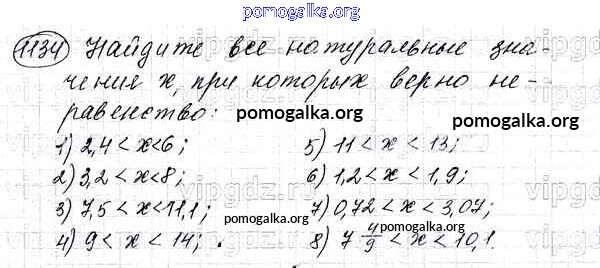 pomogalka.org
1134 Найдите все натуральные зна-
чения x, при которых верно не-
равенство:
pomogalka.org
pomogalka.org
1) 2,4 < x < 6; 5) 11 < x < 13;
2) 3,2 < x < 8; 6) 1,2 < x < 1,9;
3) 7,5 < x < 11,1; 7) 0,72 < x < 3,07;
pomogalka.org
pomogalka.org
4) 9 < x < 14; 8) 7 4/9 < x < 10,1.